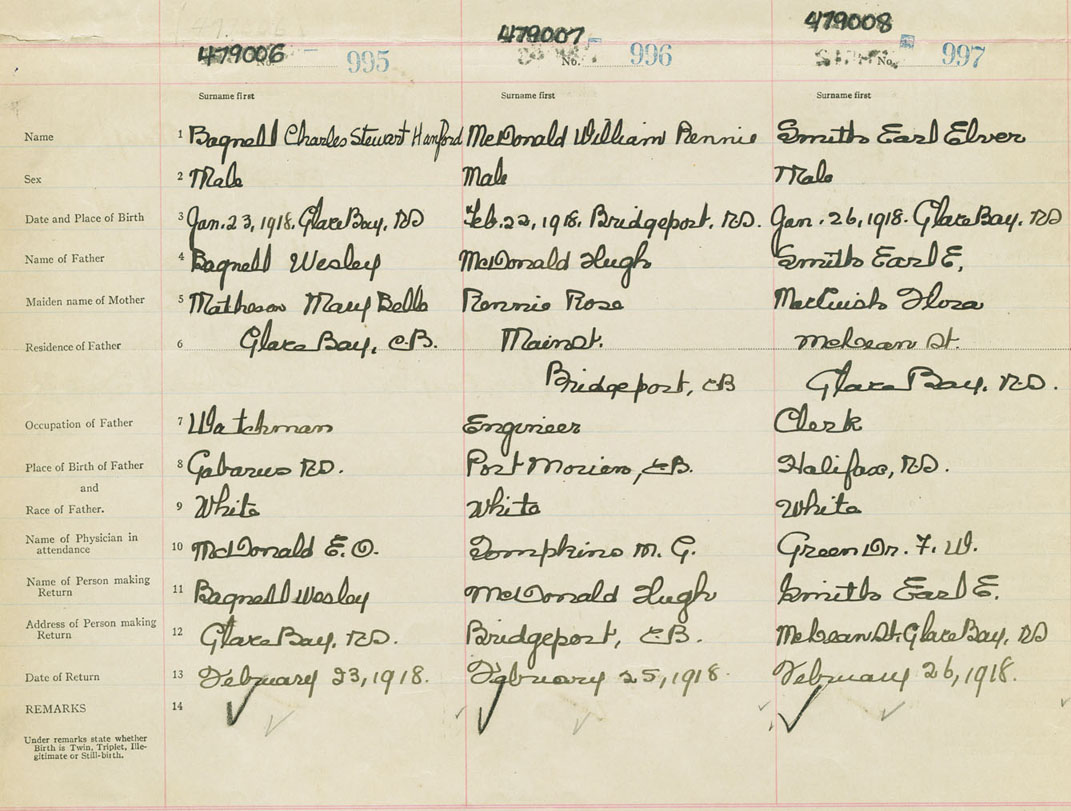 479006 479007 479008
No. 995 No. 996 No. 997
Surname first Surname first Surname first
Name 1 Bagnell Charles Stewart Hanford McDonald William Rennie Smith Earl Elver
Sex 2 Male Male Male
Date and Place of Birth 3 Jan. 23, 1918. Glace Bay, NS Feb. 22, 1918, Bridgeport, NS. Jan. 26, 1918. Glace Bay, NS
Name of Father 4 Bagnell Wesley McDonald Hugh Smith Earl E.
Maiden name of Mother 5 Matheson Mary Belle Rennie Rose MacCuish Flora
Residence of Father 6 Glace Bay, C.B. Main St. McLean St.
Bridgeport, CB Glace Bay, N.S.
Occupation of Father 7 Watchman Engineer Clerk
Place of Birth of Father 8 Gabarus NS. Port Morien, CB. Halifax, NS.
and
Race of Father. 9 White White White
Name of Physician in
attendance 10 McDonald E. O. Tompkins M. G. Green Dr. F. W.
Name of Person making
Return 11 Bagnell Wesley McDonald Hugh Smith Earl E.
Address of Person making
Return 12 Glace Bay, NS. Bridgeport, CB. McLean St, Glace Bay, NS
Date of Return 13 February 23, 1918. February 25, 1918. February 26, 1918.
REMARKS 14
Under remarks state whether
Birth is Twin, Triplet, Ille-
gitimate or Still-birth.